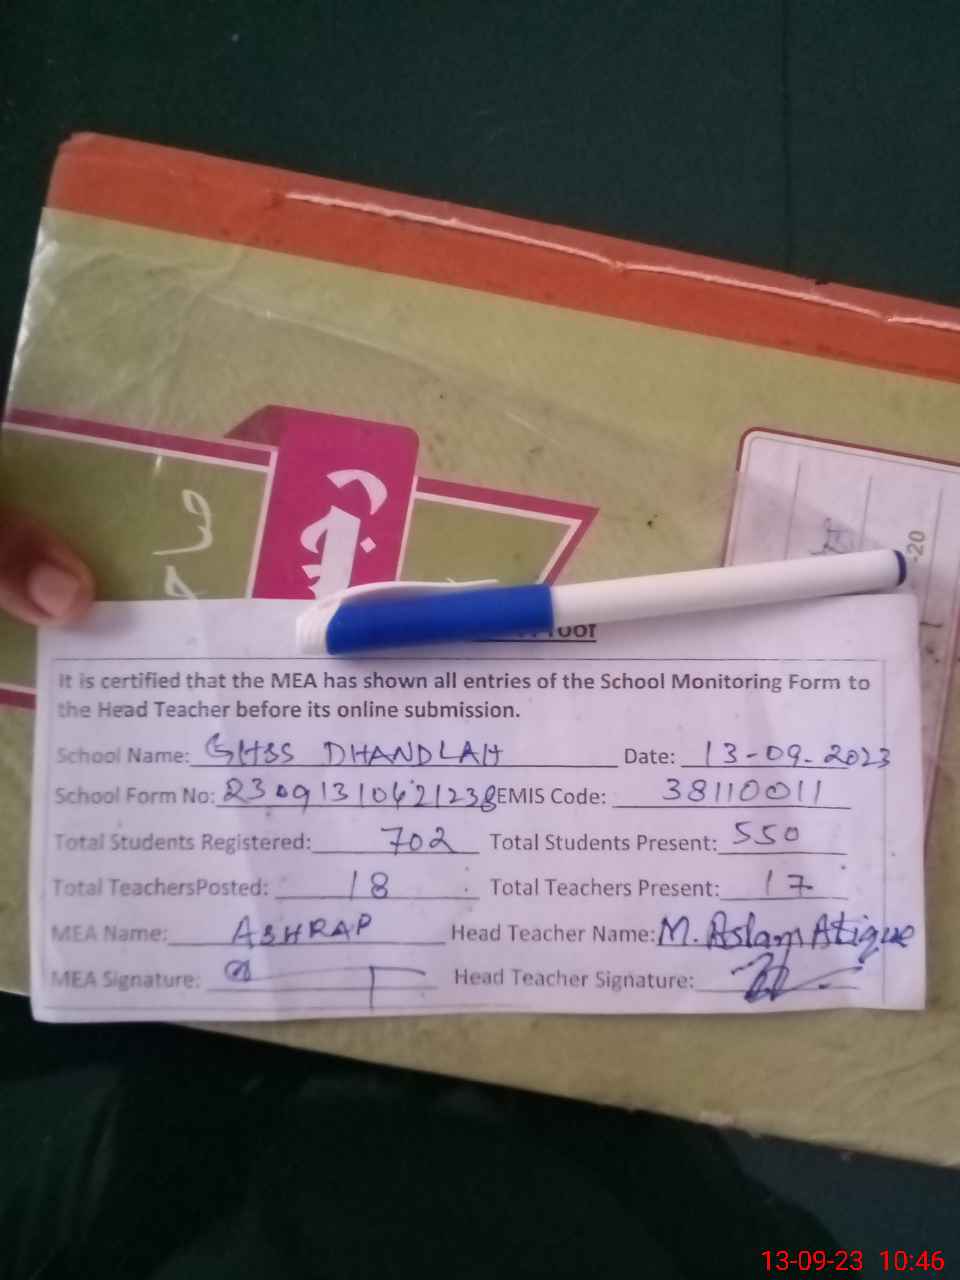 -20
It is certified that the MEA has shown all entries of the School Monitoring Form to
the Head Teacher before its online submission.
School Name: GHSS DHANDLAH Date: 13-09-2023
School Form No: EMIS Code: 38110011
Total Students Registered: 702 Total Students Present: 550
Total TeachersPosted: 18 Total Teachers Present: 17
MEA Name: ASHRAP Head Teacher Name: M. Aslam Atique
MEA Signature: Head Teacher Signature:
13-09-23 10:46